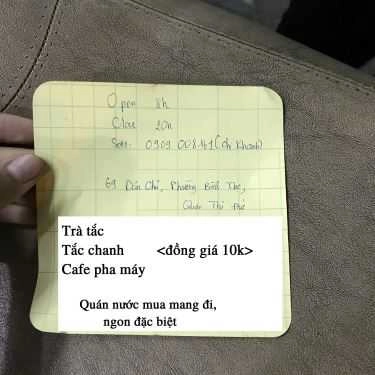 Open 8h
Close 20h
Sđt: 0909 008 141 (chị Khanh)
69 Dân Chủ, Phường Bình Thọ,
Quận Thủ Đức
Trà tắc
Tắc chanh <đồng giá 10k>
Cafe pha máy
Quán nước mua mang đi,
ngon đặc biệt